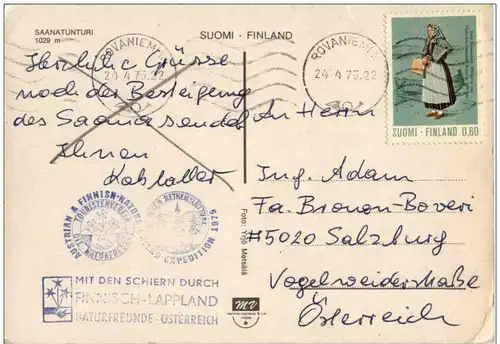 SAANATUNTURI
1029 m
SUOMI - FINLAND
ROVANIEMI
24.4.75.22
ROVANIEMI
24.4.75.22
SUOMI - FINLAND 0,60
Herzliche Grüsse
nach der Besteigung
des Saana sendet
Ihnen
An Herrn
Ing. Adam
Fa. Brown-Boveri
#5020 Salzburg
Vogelweiderstraße
Österreich
AUSTRIAN & FINNISH-NATUR
EXPEDITION 1975
TOURISTENVEREIN
NATURFREUNDE
MIT DEN SCHIERN DURCH
FINNISCH-LAPPLAND
NATURFREUNDE-ÖSTERREICH
Foto: Yrjö Metsälä
MV